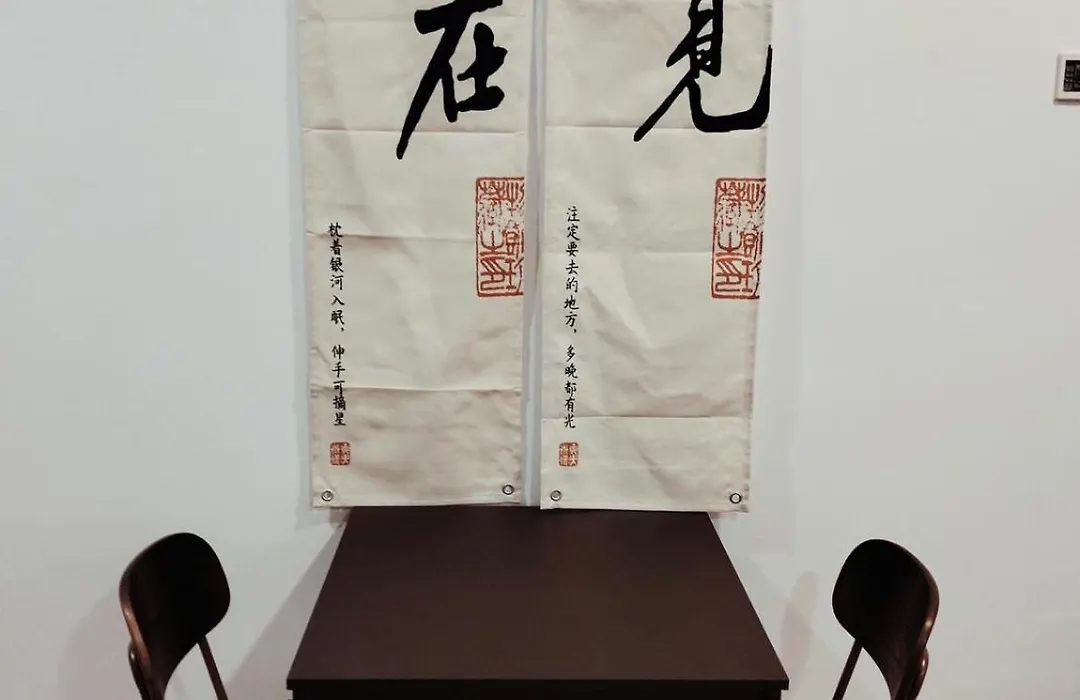 見
注定要去的地方，多晚都有光
在
枕着银河入眠，伸手可摘星